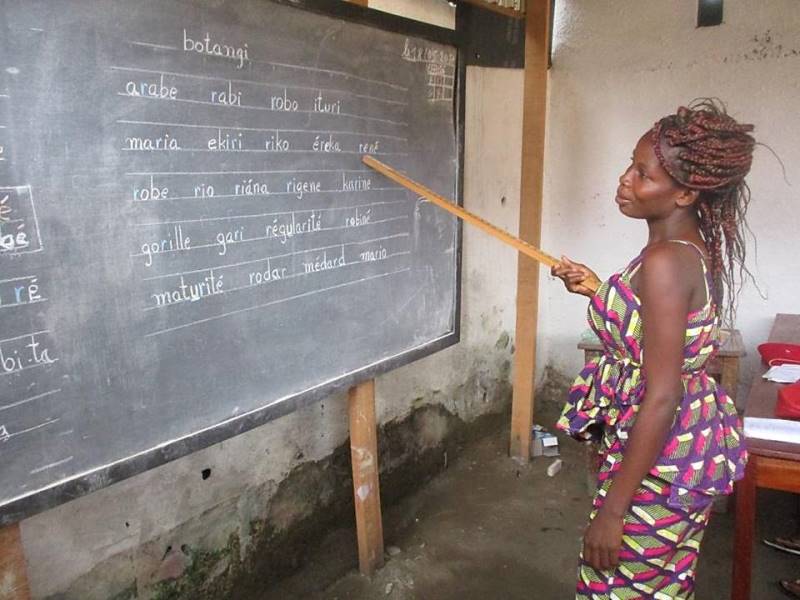 botangi
arabe rabi robo ituri
maria ekiri riko éreka rené
robe rio riána rigene karine
gorille gari régularité robiné
maturité rodar médard mario
bé
ré
bi ta